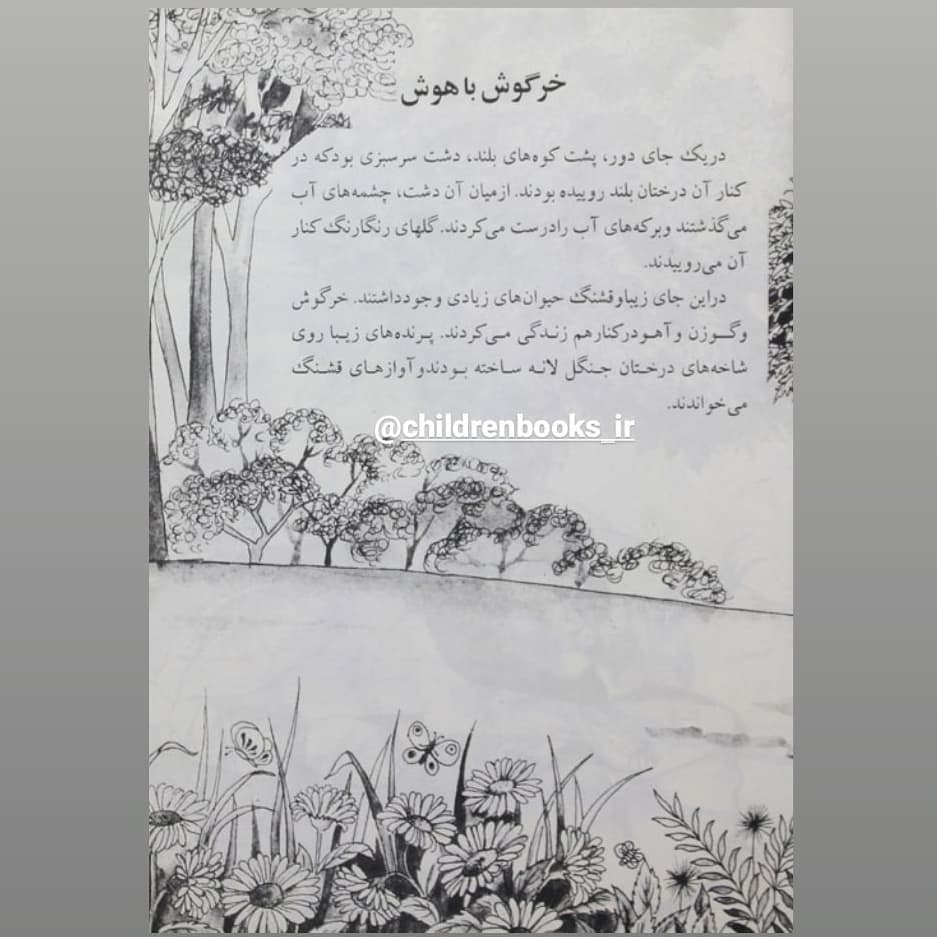 خرگوش با هوش
دریک جای دور، پشت کوه‌های بلند، دشت سرسبزی بودکه در
کنار آن درختان بلند روییده بودند. ازمیان آن دشت، چشمه‌های آب
می‌گذشتند وبرکه‌های آب رادرست می‌کردند. گلهای رنگارنگ کنار
آن می‌روییدند.
دراین جای زیباوقشنگ حیوان‌های زیادی وجودداشتند. خرگوش
وگوزن وآهودرکنارهم زندگی می‌کردند. پرنده‌های زیبا روی
شاخه‌های درختان جنگل لانه ساخته بودندوآوازهای قشنگ
می‌خواندند.
@childrenbooks_ir